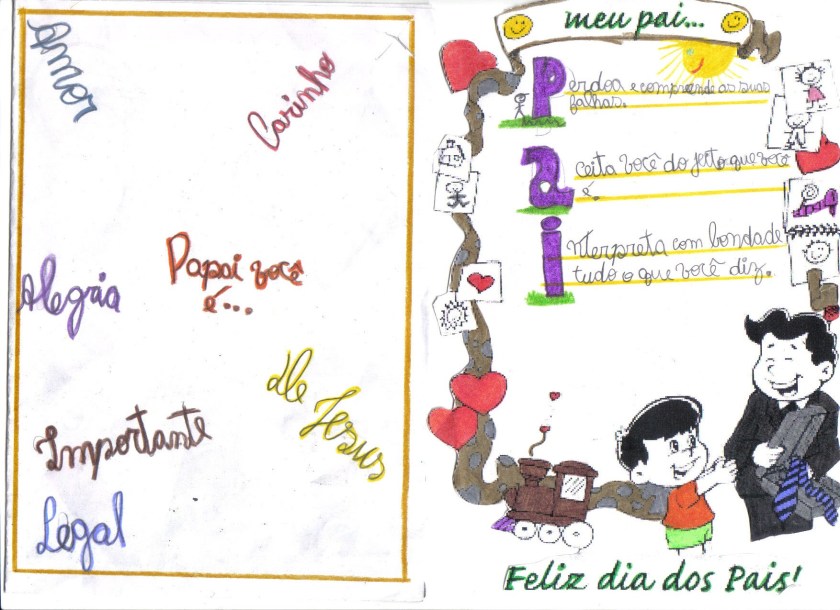 Amor
Carinho
Alegria
Papai você
é...
De Jesus
Importante
Legal
meu pai...
Perdoa e compreende as suas
falhas.
aceita você do jeito que você
é.
interpreta com bondade
tudo o que você diz.
Feliz dia dos Pais!